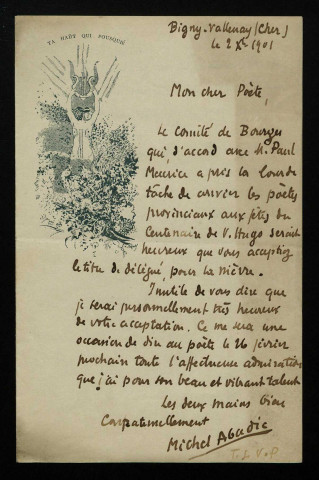 VA HARDI QUI POURQUOI
Bigny-Vallenay (Cher)
le 2 Xbre 1901
Mon cher Poète,
Le Comité de Bourges
qui, d'accord avec M. Paul
Meurice a pris la lourde
tâche de convier les poètes
provinciaux aux fêtes du
Centenaire de V. Hugo serait
heureux que vous acceptiez
le titre de délégué pour la Nièvre.
Inutile de vous dire que
je serai personnellement très heureux
de votre acceptation. Ce me sera une
occasion de dire au poète le 26 février
prochain toute l'affectueuse admiration
que j'ai pour son beau et vibrant talent
Les deux mains bien
Confraternellement
Michel Abadie
T.S.V.P.